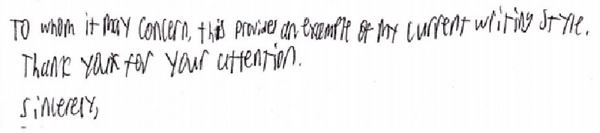 To whom it may concern, this provides an example of my current writing style.
Thank you for your attention.
Sincerely,